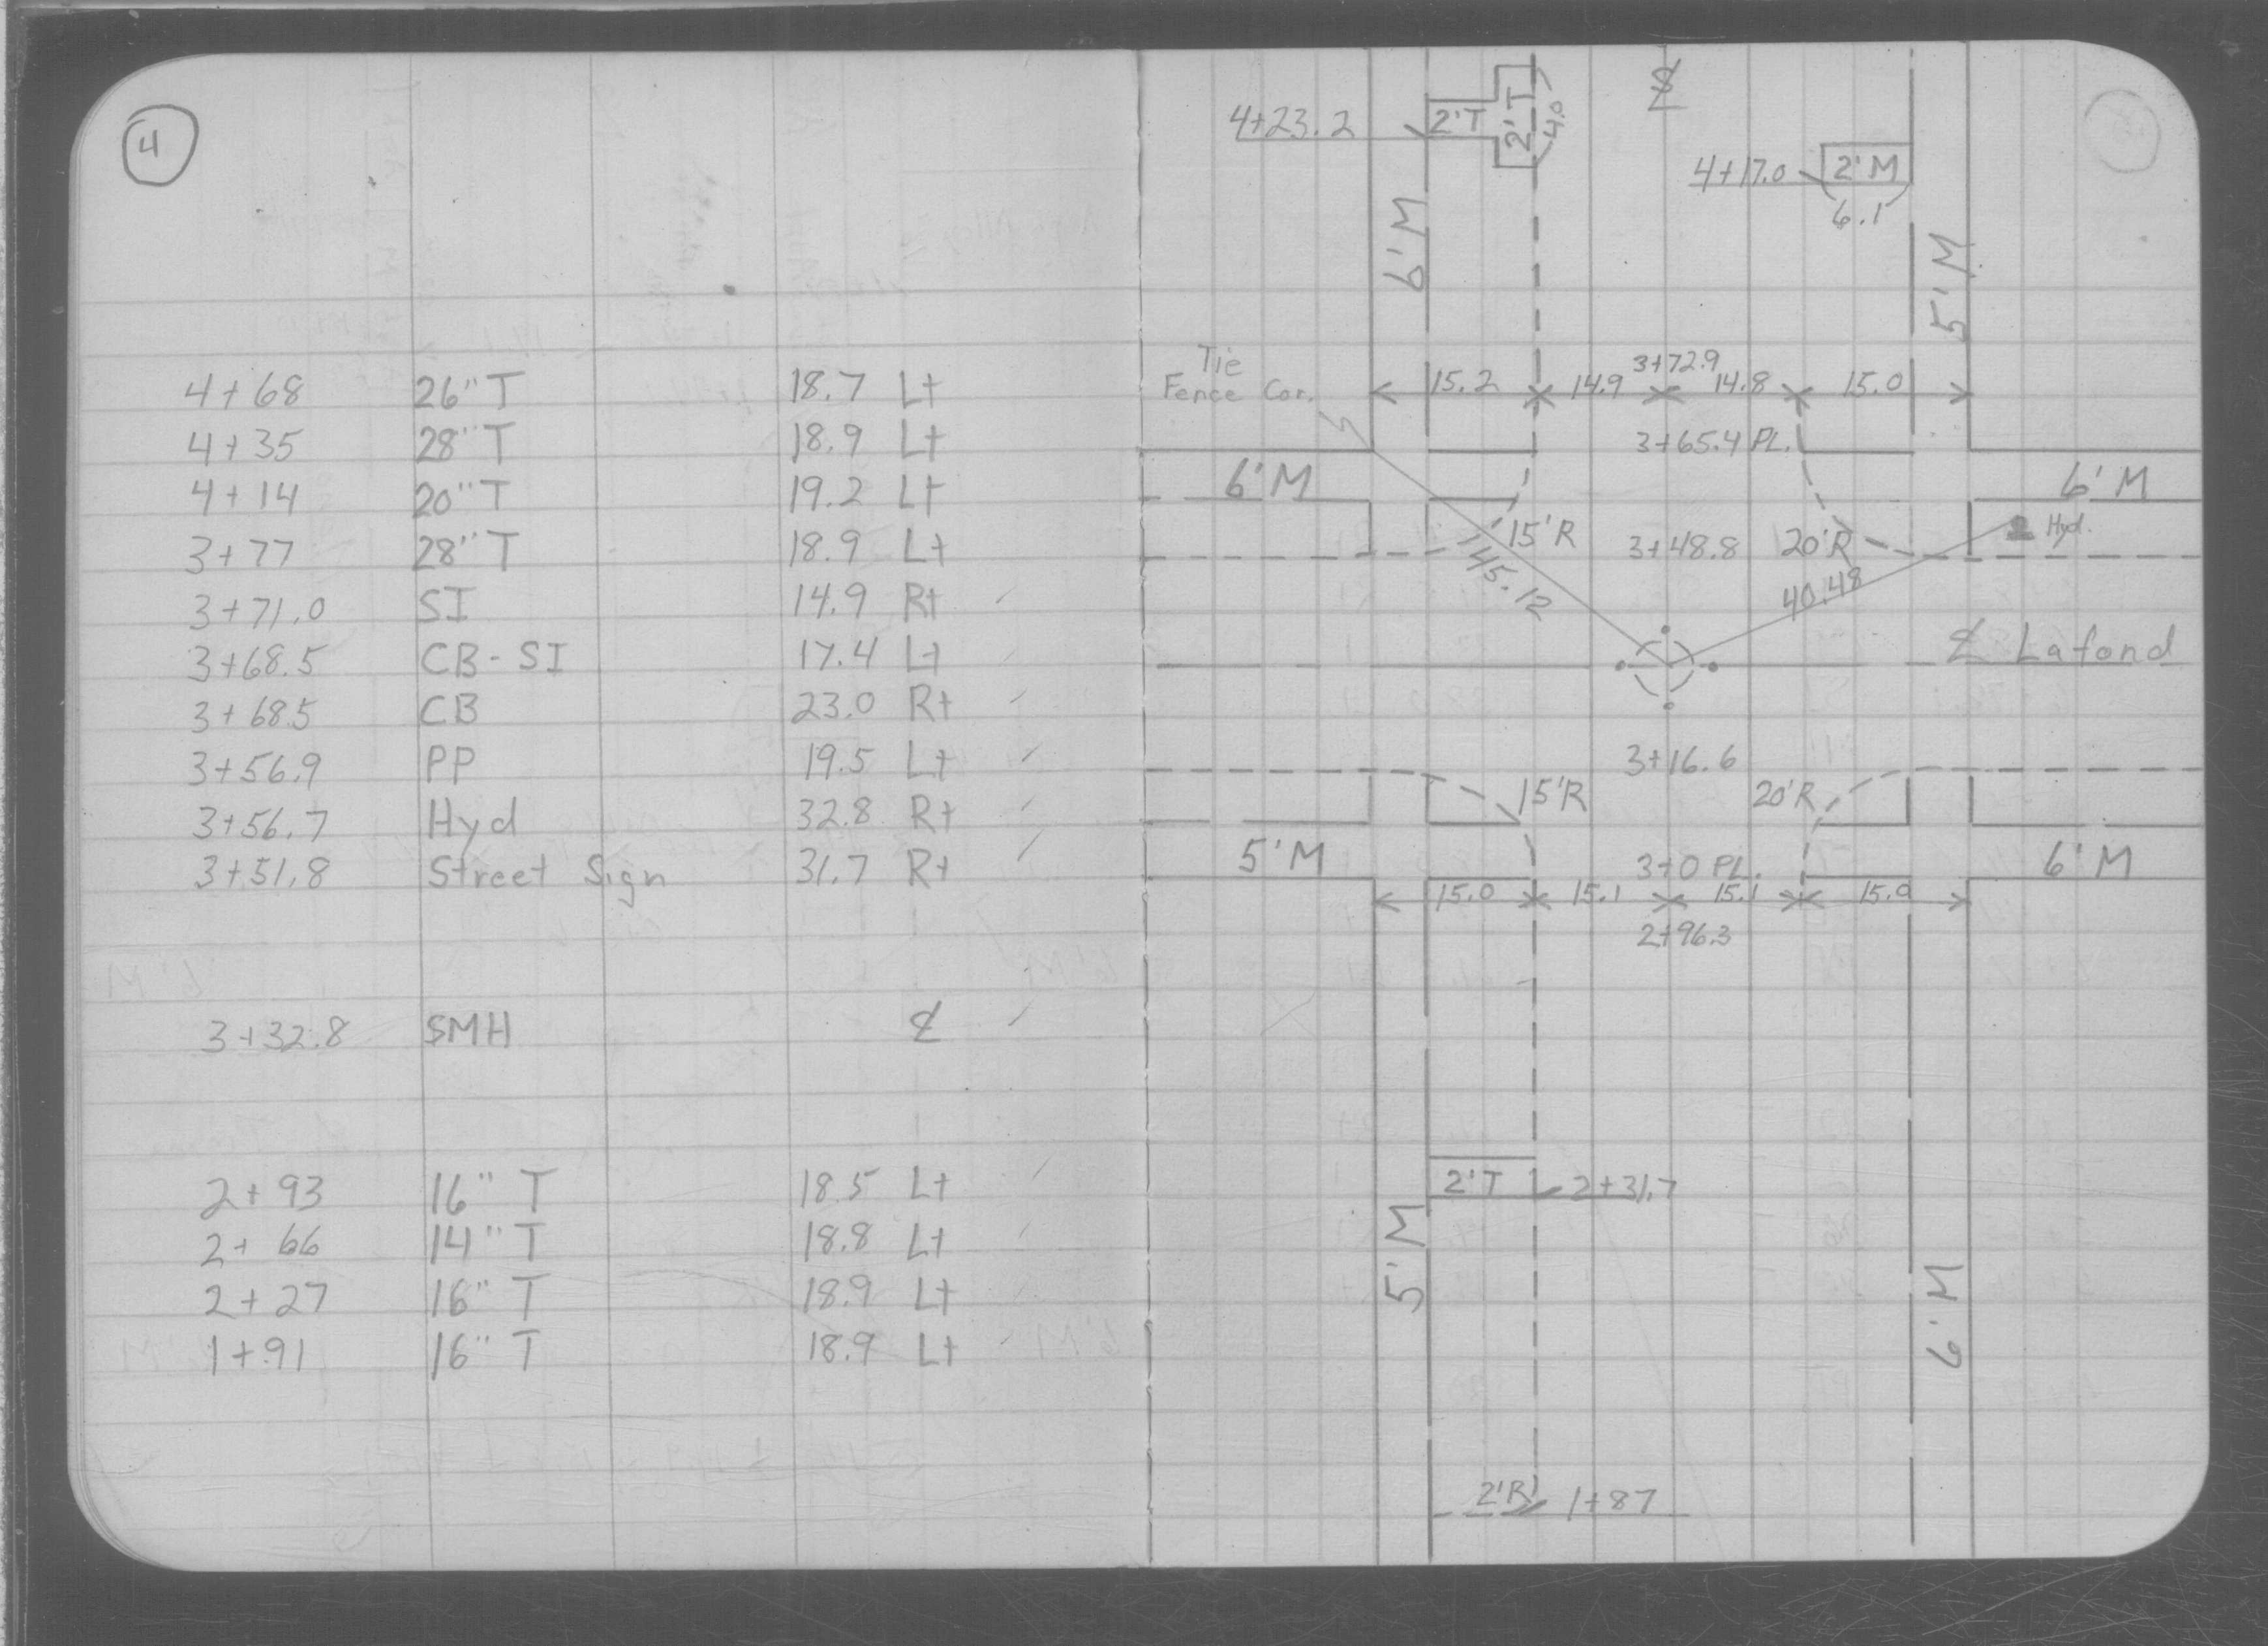 4
4+68 26" T 18.7 Lt
4+35 28" T 18.9 Lt
4+14 20" T 19.2 Lt
3+77 28" T 18.9 Lt
3+71.0 SI 14.9 Rt
3+68.5 CB-SI 17.4 Lt
3+68.5 CB 23.0 Rt
3+56.9 PP 19.5 Lt
3+56.7 Hyd 32.8 Rt
3+51.8 Street Sign 31.7 Rt
3+32.8 SMH ℄
2+93 16" T 18.5 Lt
2+66 14" T 18.8 Lt
2+27 16" T 18.9 Lt
1+91 16" T 18.9 Lt
℄
4+23.2 2'T 2'T 4.0
4+17.0 2'M
6.1
6'M
5'M
Tie
Fence Cor.
3+72.9
15.2 14.9 14.8 15.0
3+65.4 PL.
6'M 6'M
15'R 3+48.8 20'R Hyd.
145.12 40.48
℄ Lafond
3+16.6
15'R 20'R
5'M 3+0 PL. 6'M
15.0 15.1 15.1 15.0
2+96.3
2'T 2+31.7
5'M
6'M
2'R 1+87